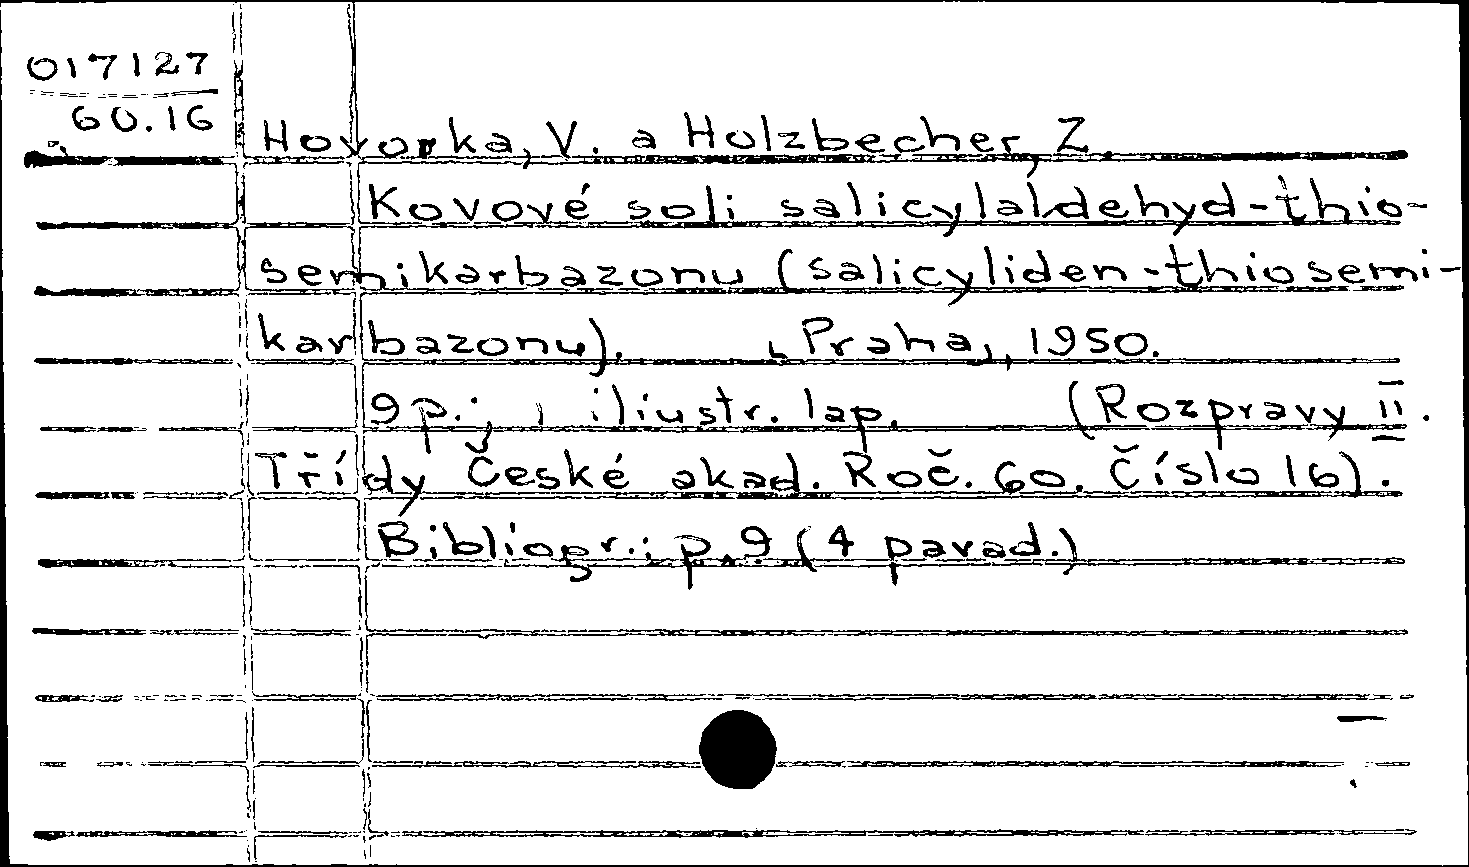 017127
60.16
Hovorka, V. a Holzbecher, Z.
Kovové soli salicylaldehyd-thio-
semikarbazonu (salicyliden-thiosemi-
karbazonu). Praha, 1950.
9 p.; 1 iliustr. lap. (Rozpravy II.
Třídy České akad. Roč. 60. Číslo 16).
Bibliogr.: p. 9 (4 pavad.)